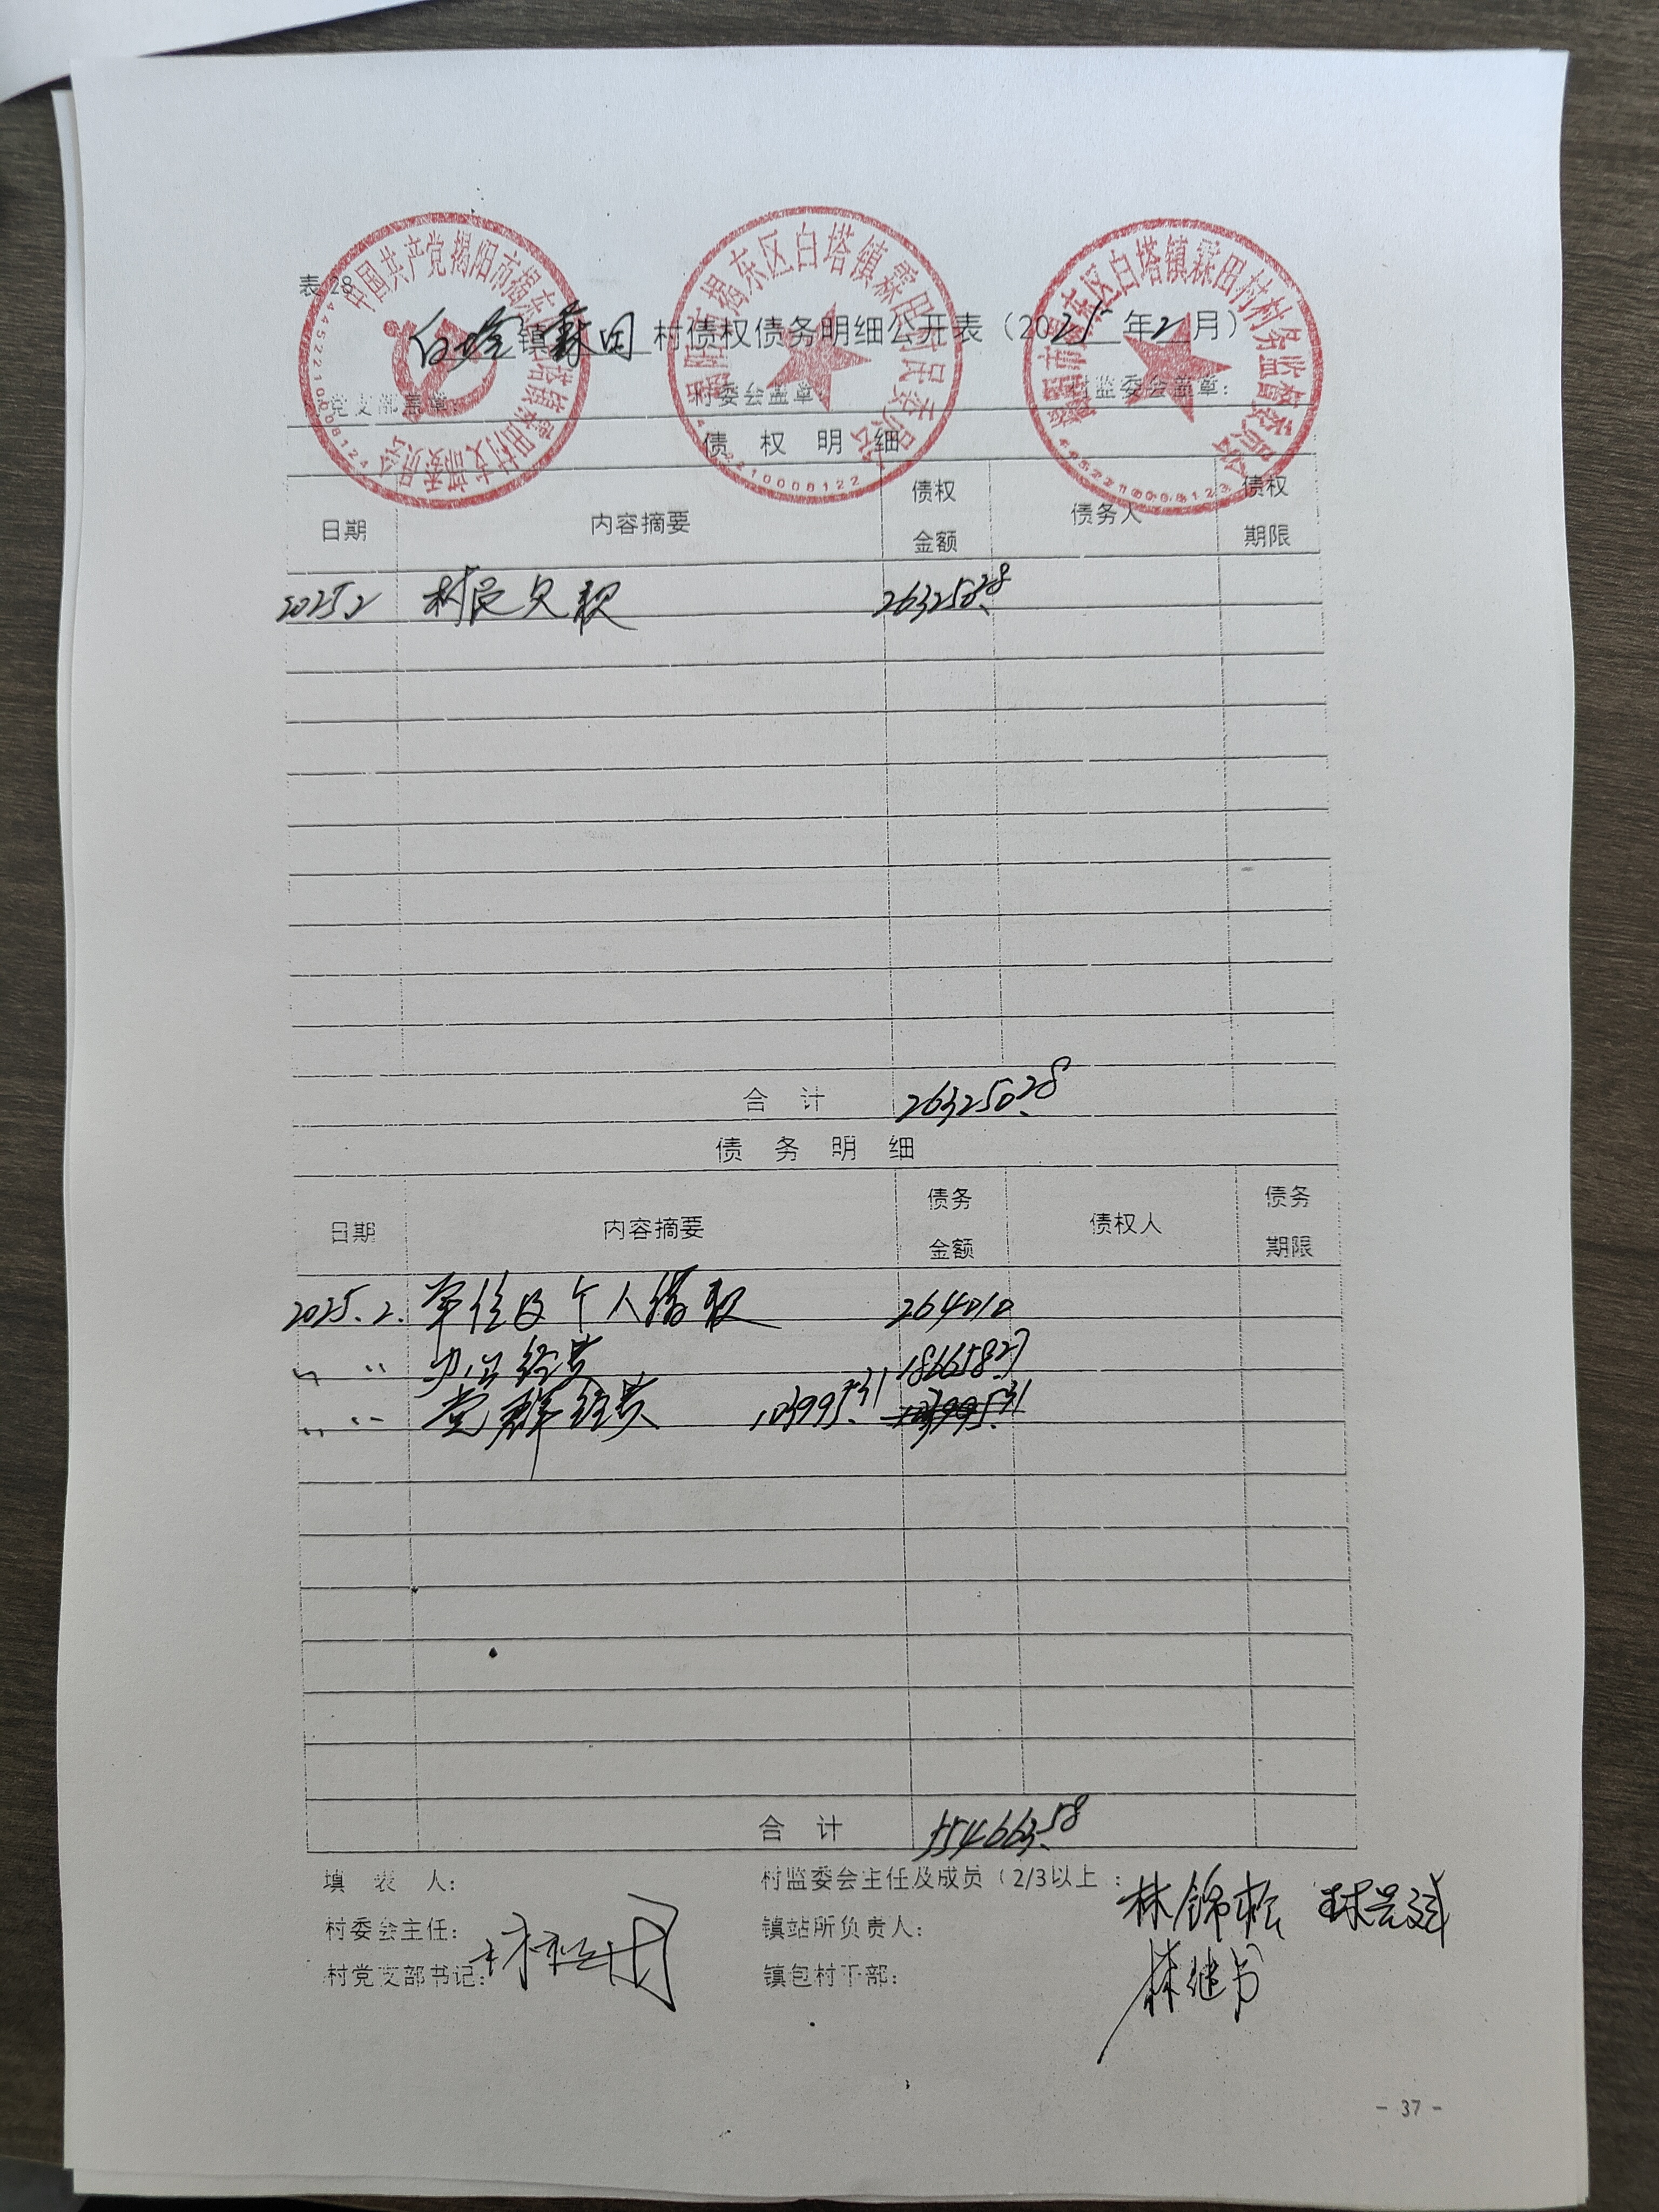 表 28
中国共产党揭阳市揭东区白塔镇霖田村支部委员会
4452210008124
揭阳市揭东区白塔镇霖田村民委员会
揭阳市揭东区白塔镇霖田村村务监督委员会
4452210008123
白塔镇霖田村债权债务明细公开表（2025年2月）
党支部盖章: 村委会盖章 村监委会盖章:
债权明细
日期 内容摘要 债权金额 债务人 债权期限
2025.2 村民欠款 263250.28
合计 263250.28
债务明细
日期 内容摘要 债务金额 债权人 债务期限
2025.2. 单位及个人借款 264010
〃 〃 办公经费 186658.27
〃 〃 党群经费 103995.31 103995.31
合计 554663.58
填表人: 村监委会主任及成员（2/3以上: 林锦松
村委会主任: 镇站所负责人:
村党支部书记: 镇包村干部: 林继书
- 37 -